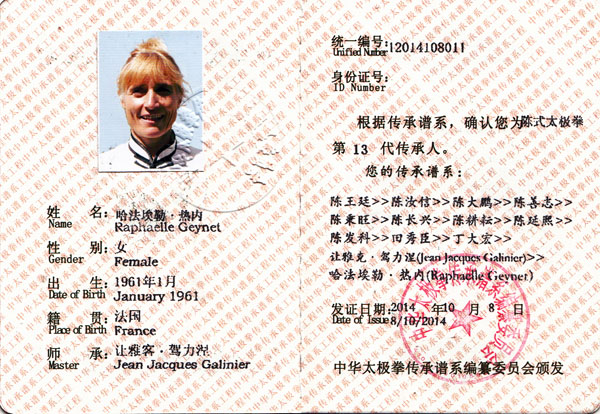 姓 名: 哈法埃勒·热内
Name Raphaelle Geynet
性 别: 女
Gender Female
出 生: 1961年1月
Date of Birth January 1961
籍 贯: 法国
Place of Birth France
师 承: 让雅客·驾力涅
Master Jean Jacques Galinier
统一编号: 12014108011
Unified Number
身份证号:
ID Number
根据传承谱系，确认您为陈式太极拳
第 13 代传承人。
您的传承谱系：
陈王廷>>陈汝信>>陈大鹏>>陈善志>>
陈秉旺>>陈长兴>>陈耕耘>>陈延熙>>
陈发科>>田秀臣>>丁大宏>>
让雅克·驾力涅(Jean Jacques Galinier)>>
哈法埃勒·热内(Raphaelle Geynet)
发证日期: 2014 年 10 月 8 日
Date of Issue 8/10/2014
中华太极拳传承谱系编纂委员会颁发